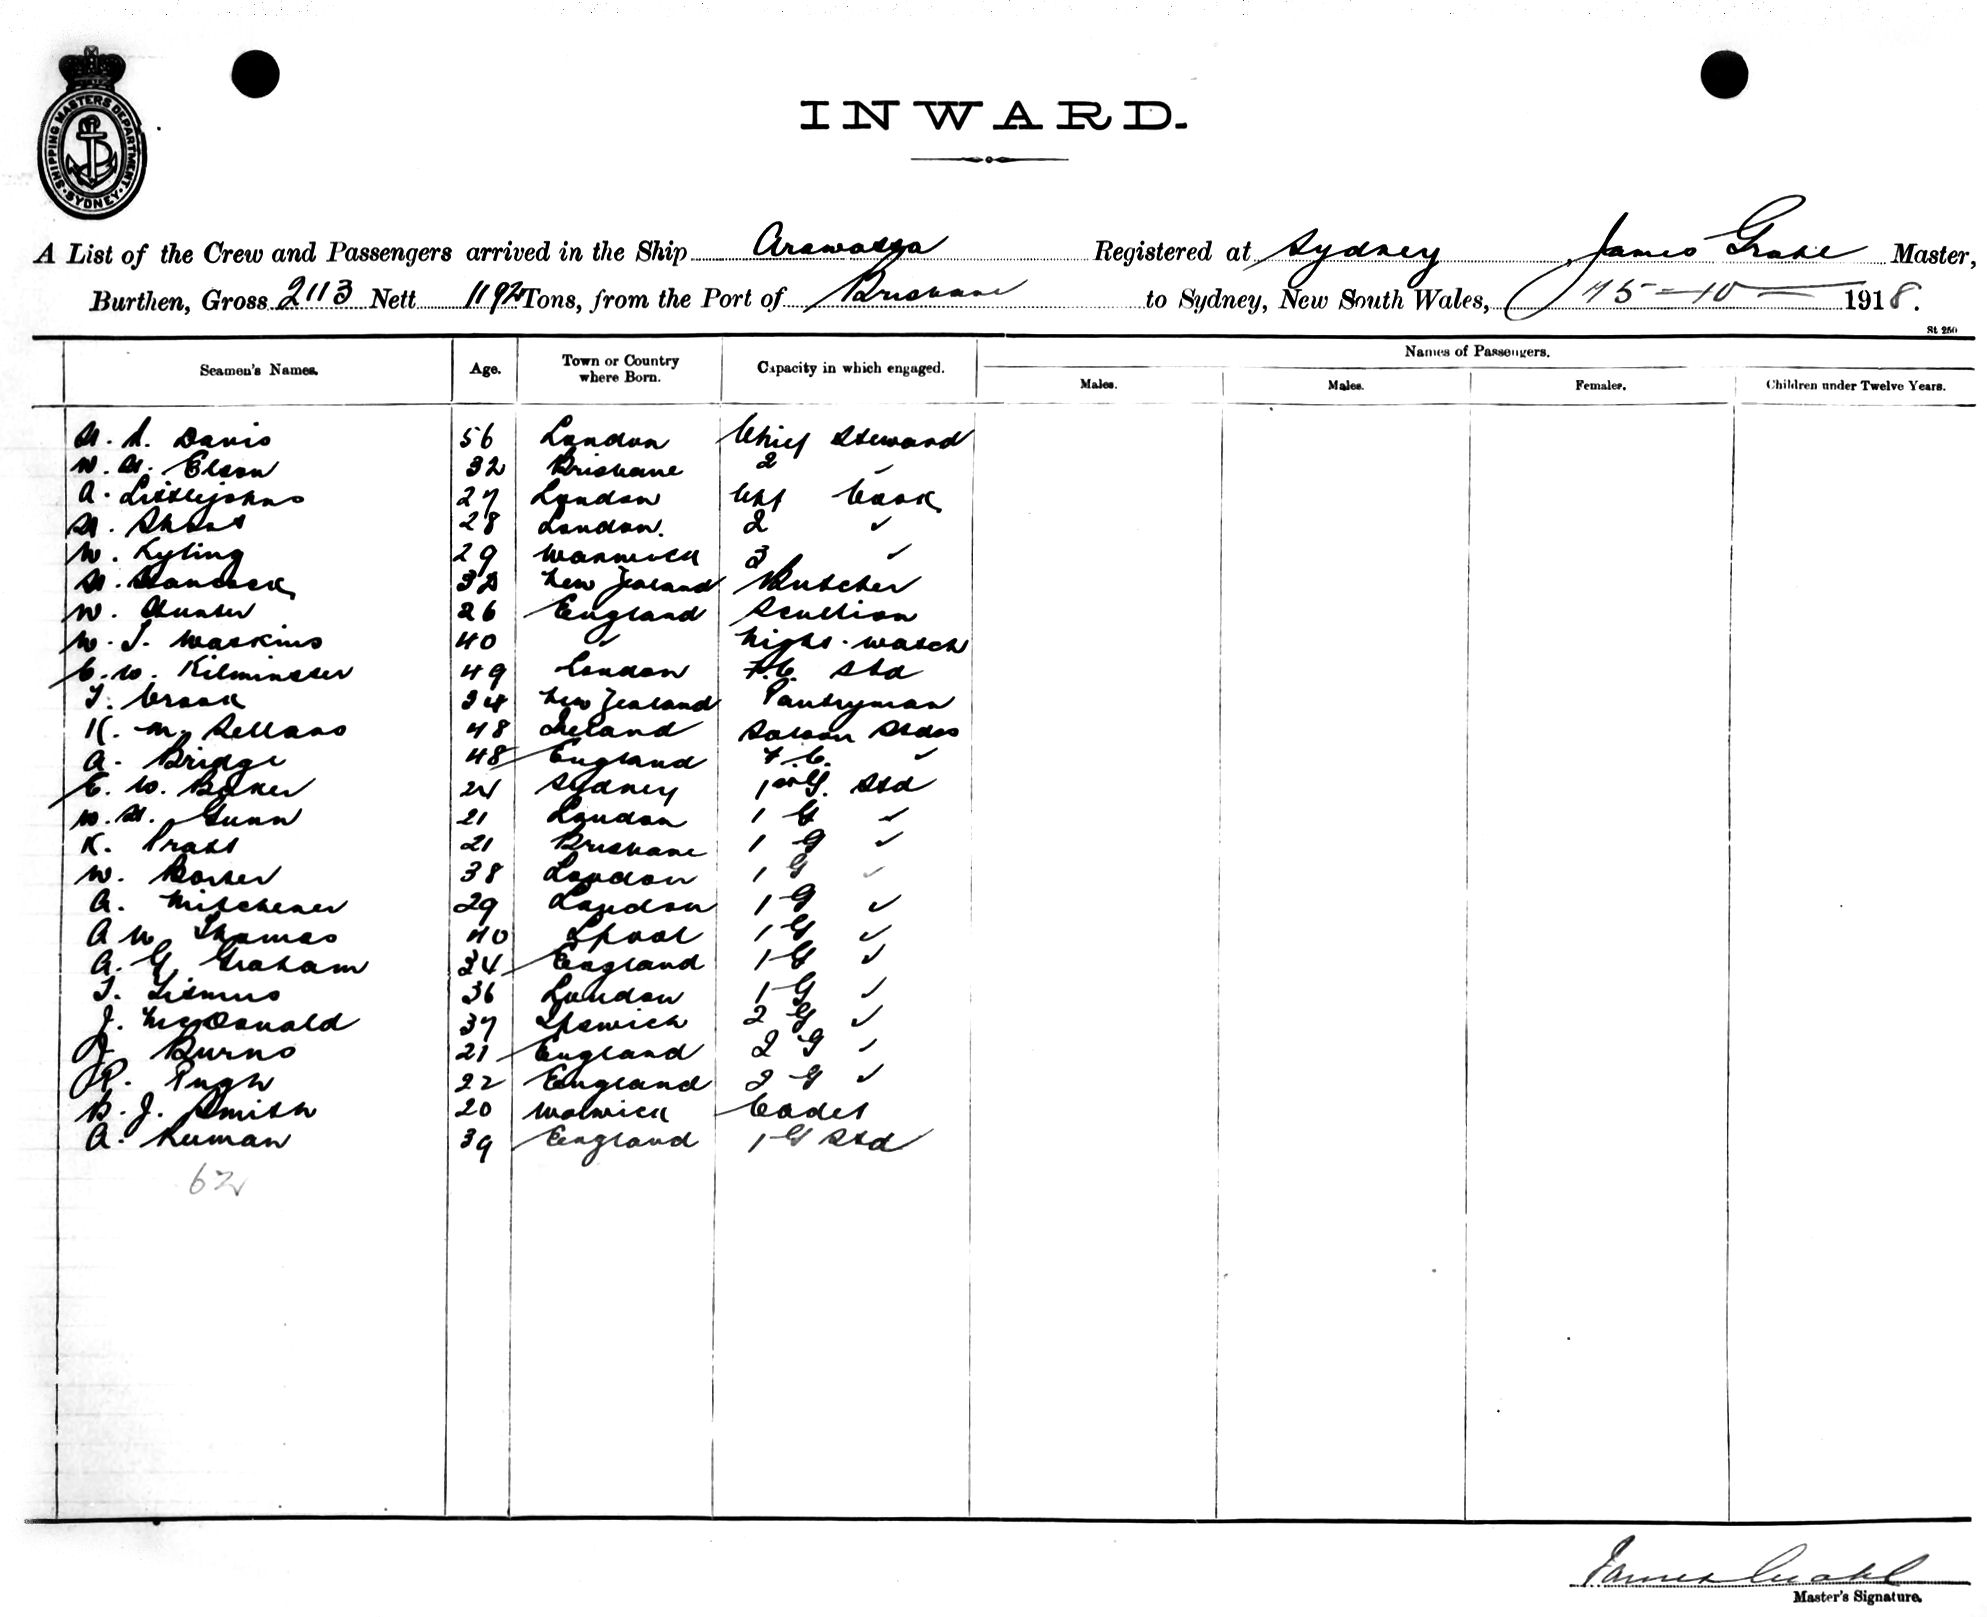 SHIPPING MASTERS DEPARTMENT SYDNEY
INWARD.
A List of the Crew and Passengers arrived in the Ship Arawatta Registered at Sydney, James Grahl Master,
Burthen, Gross 2113 Nett 1192 Tons, from the Port of Brisbane to Sydney, New South Wales, 15-10-1918.
St 250
Seamen's Names. Age. Town or Country where Born. Capacity in which engaged. Names of Passengers.
Males. Males. Females. Children under Twelve Years.
Davis 56 London Chief Steward
W. H. Elson 32 Brisbane 2 ✓
A. Littlejohns 27 London Chf Cook
H. Short 28 London. 2 ✓
W. Kyling 29 Warwick 3 ✓
H. Hancock 32 New Zealand Butcher
W. Hunter 26 England Scullion
W. T. Watkins 40 ✓ Night-watch
C. W. Kilminster 49 London F.C. Std
T. Crook 34 New Zealand Pantryman
K. M. Sellars 48 Ireland Saloon Stdss
A. Bridge 48 England F.C. ✓
E. W. Baker 24 Sydney 1st G. Std
W. H. Gunn 21 London 1 G ✓
K. Pratt 21 Brisbane 1 G ✓
W. Porter 38 London 1 G ✓
A. Mitchener 29 London 1 G ✓
A W Thomas 40 Lpool 1 G ✓
A. G. Graham 34 England 1 G ✓
T. Titmus 36 London 1 G ✓
J. McDonald 37 Ipswich 2 G ✓
J Burns 21 England 2 G ✓
R. Pugh 22 England 2 G ✓
B. J. Smith 20 Cadet
A. 39 England 1 G Std
62
James Grahl
Master's Signature.